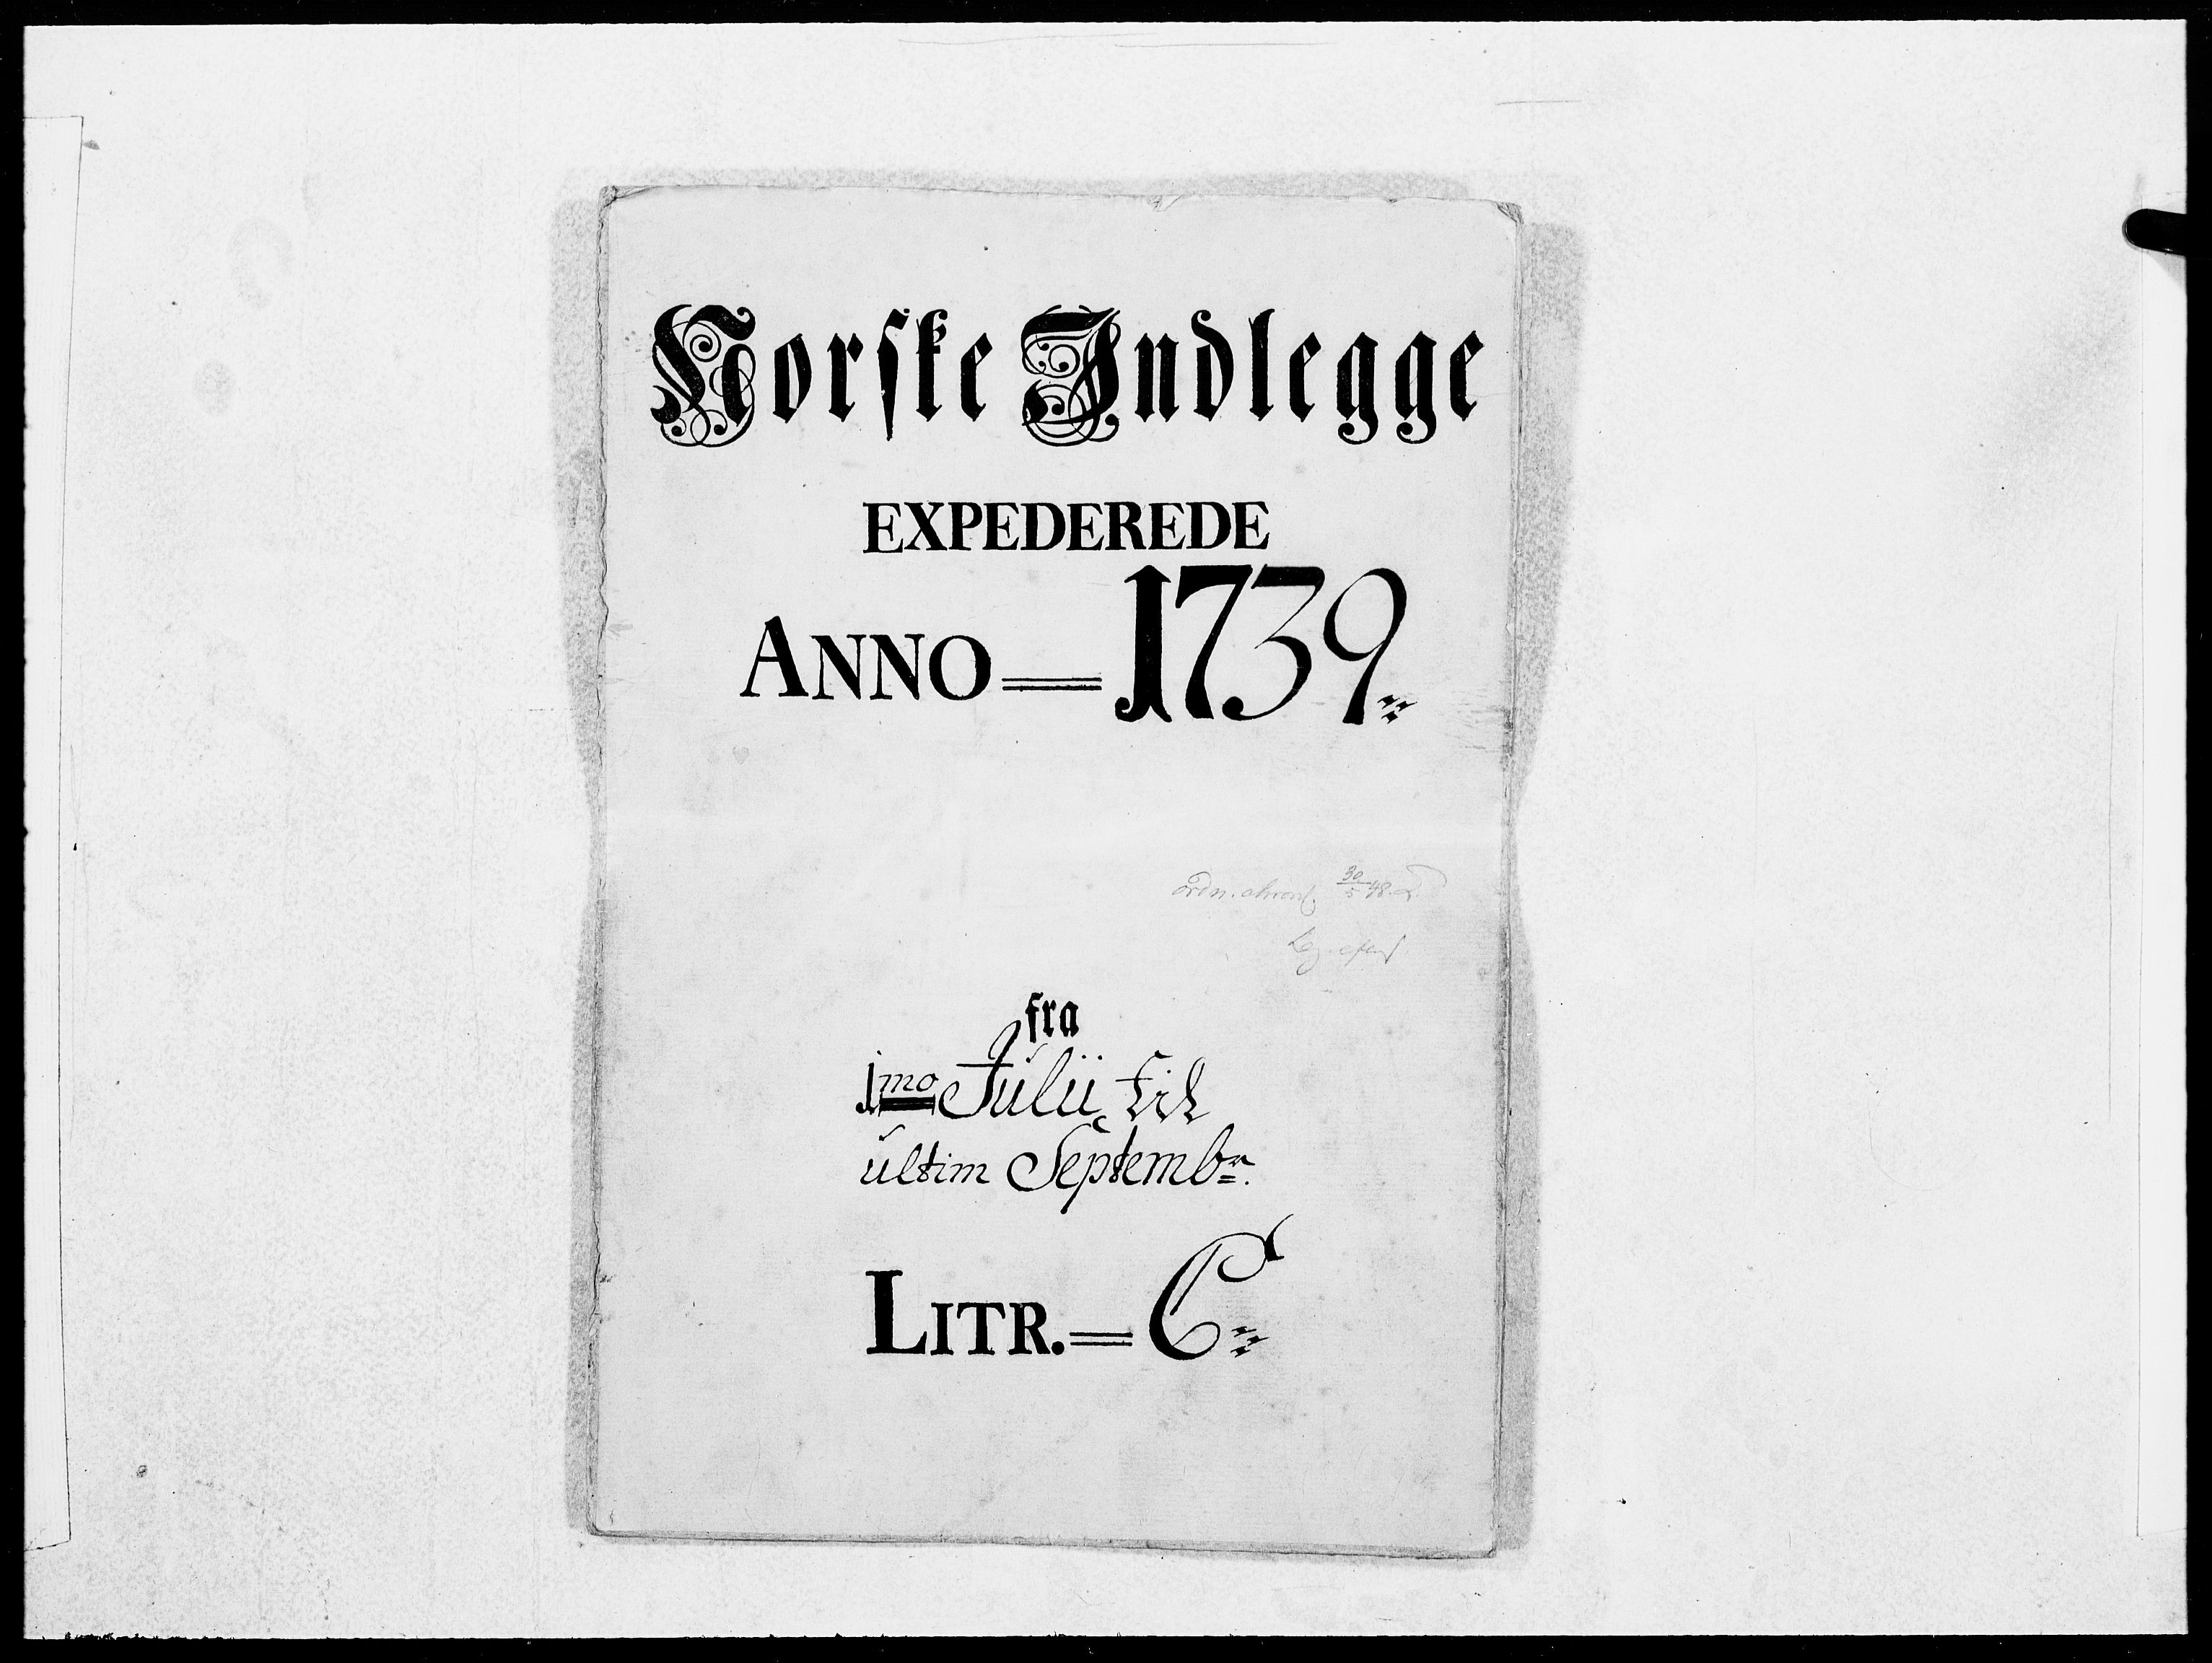 Norske Indlegge
EXPEDEREDE
ANNO = 1739
ordn. chronl. 30/5 48.
fra
1mo Julii til
ultim Septembr.
LITR. = C